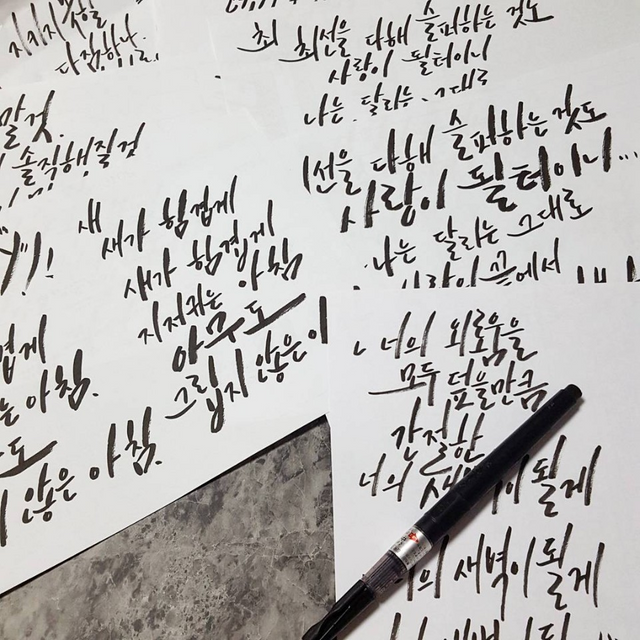 지지지 않을
다짐하나.
말것.
솔직해질것
최 최선을 다해 슬퍼하는 것도
사랑이 될테이니
나는. 달라는. 그대로
선을 다해 슬퍼하는 것도
사랑이 될테이니...
나는 달라는 그대로
사랑이 끝에서
새
새가 힘겹게
새가 힘겹게
지저귀는 아침
아무도
그립지 않은 아
겹게
는 아침.
도
지 않은 아침.
너의 외로움을
모두 덮을만큼
간절한
너의 새벽이 될게
너의 새벽이 될게